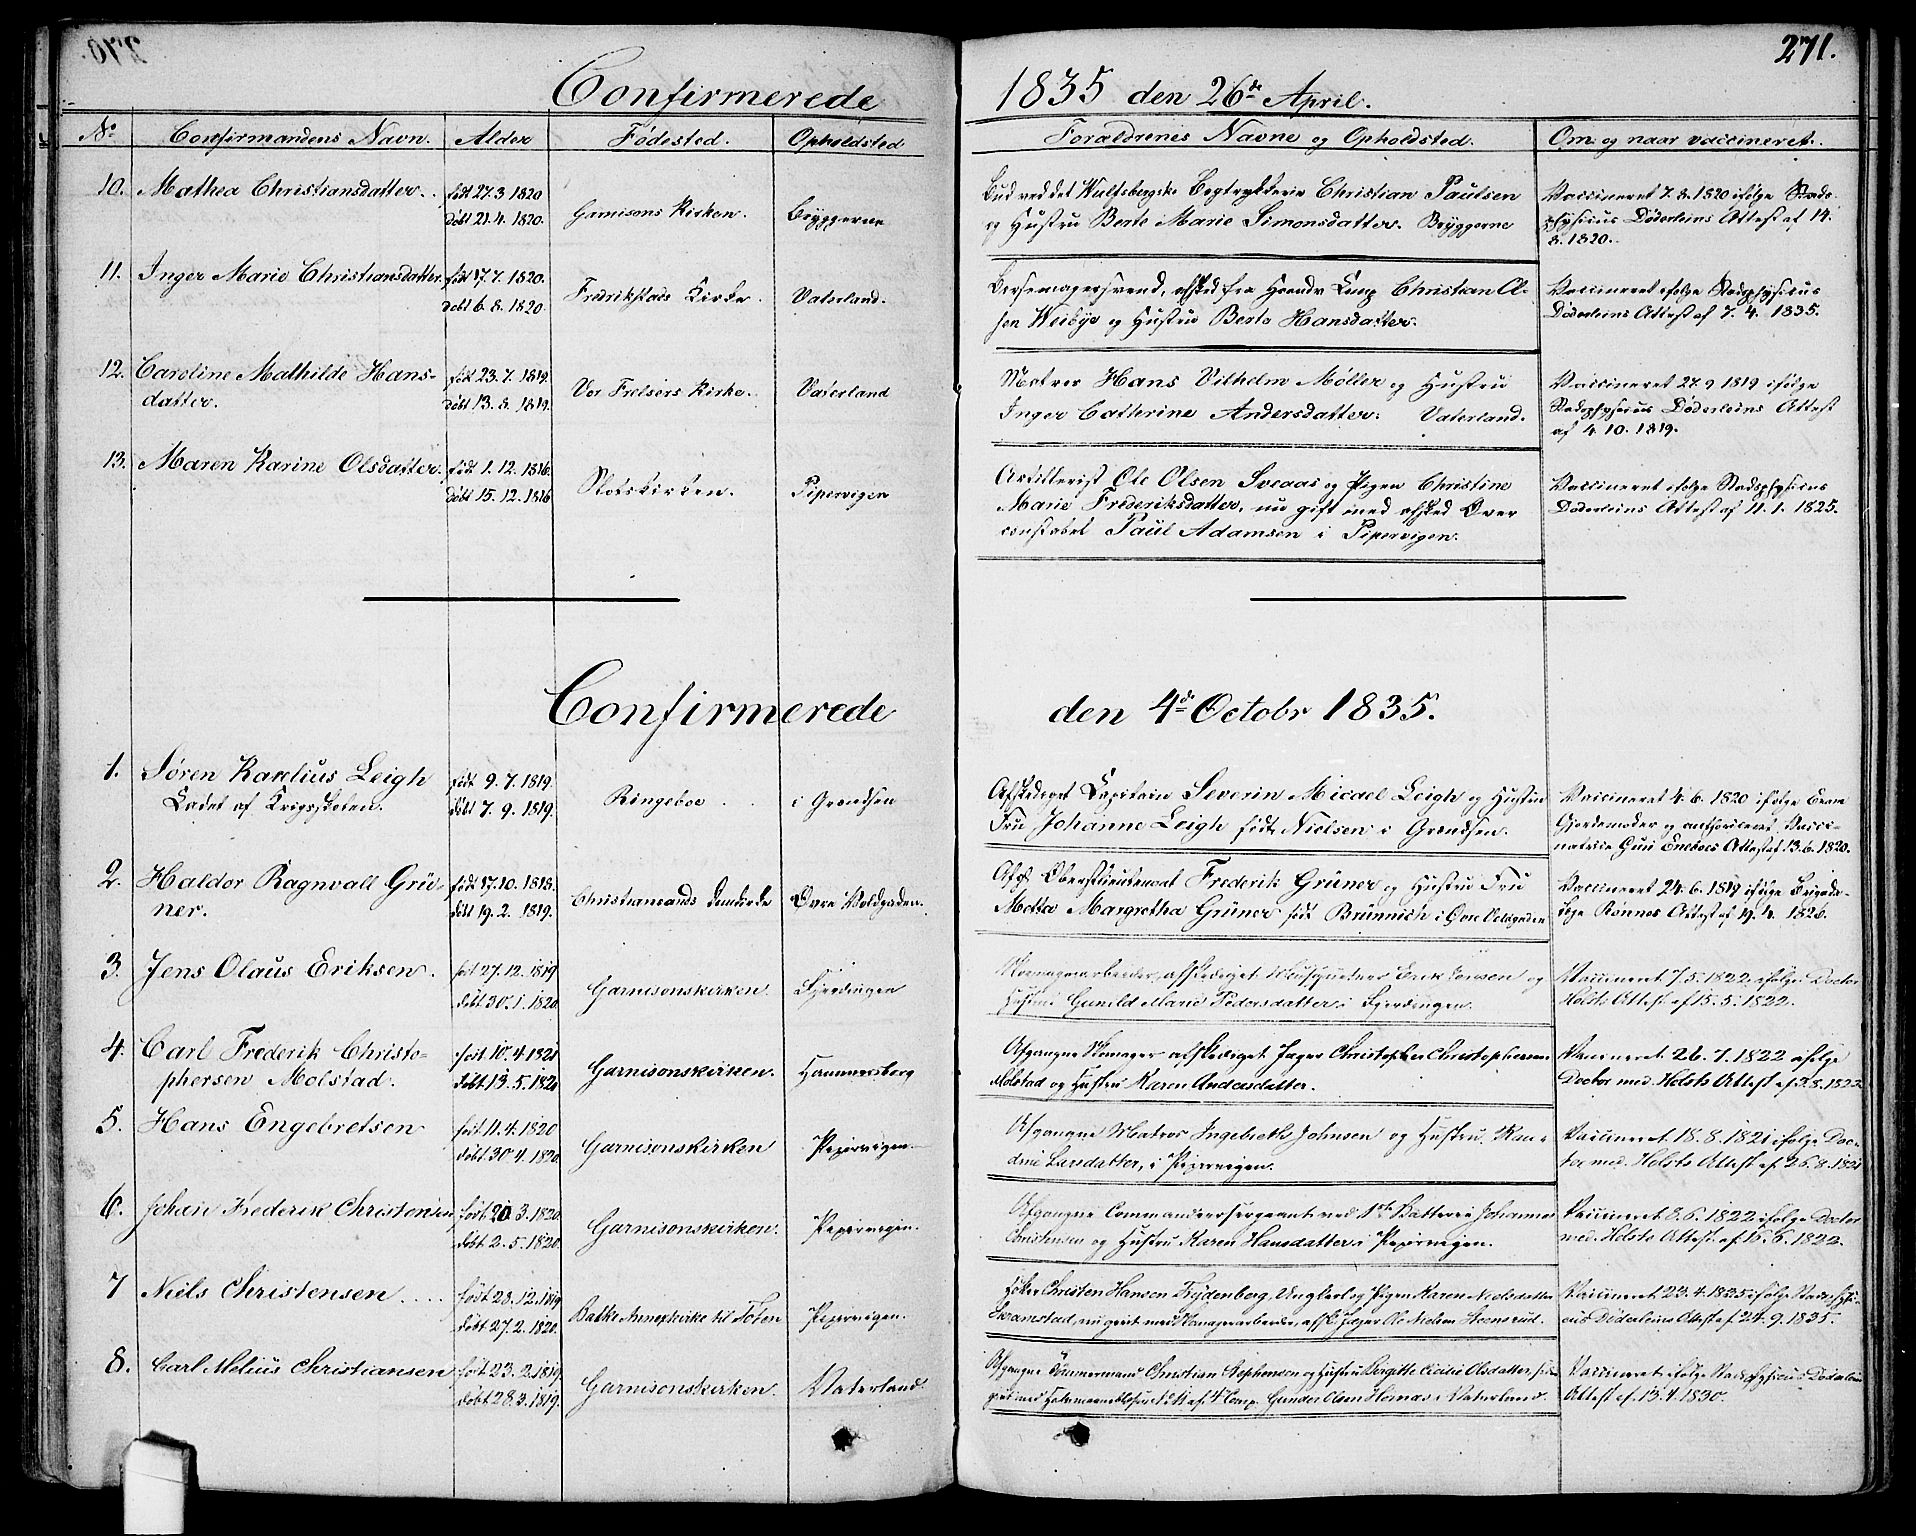 271.
Confirmerede 1835 den 26de April.
No Confirmandens Navn. Alder Fødested. Opholdsted Forældrenes Navne og Opholdsted. Om og naar vaccineret.
10. Mathea Christiansdatter. født 27.3 1820 Garnisons Kirken. Bryggerne Bud ved det Wulfsbergske Bogtrykkerie Christian Paulsen Vaccineret 7.8.1820 ifølge Stads-
døbt 21.4.1820. og Hustru Berte Marie Simonsdatter. Bryggerne physicus Døderleins Attest af 14.
8.1820.
11. Inger Marie Christiansdatter. født 17.7.1820. Fredrikstads Kirke. Vaterland. afsked fra Christian Ol- Vaccineret ifølge Stadsphysicus
døbt 6.8.1820. sen Weibye og Hustru Berte Hansdatter. Døderleins Attest af 7.4.1835.
12. Caroline Mathilde Hans- født 23.7.1819. Vor Frelsers Kirke. Vaterland Matros Hans Vilhelm Møller og Hustru Vaccineret 27.9 1819 ifølge
datter. døbt 13.8.1819. Inger Cathrine Andersdatter. Vaterland. Stadsphysicus Døderleins Attest
af 4.10.1819.
13. Maren Karine Olsdatter. født 1.12.1816. Slotskirken. Pipervigen Artillerist Ole Olsen Sveaas og Pigen Christine Vaccineret ifølge Stadsphysicus
døbt 15.12.1816 Marie Frederiksdatter, nu gift med afsked Over Døderleins Attest af 11.1.1825.
constabel Paul Adamsen i Pipervigen.
Confirmerede den 4de Octobr 1835.
1. Søren Karelius Leigh født 9.7.1819. Ringeboe i Grændsen Afskediget Capitain Severin Micael Leigh og Hustru Vaccineret 4.6.1820 ifølge Exam
Cadet af Krigsskolen. døbt 7.9.1819. Fru Johanne Leigh født Nielsen i Grændsen. Gjordemoder og authoriseret Vacci-
natrice Guri Eneboes Attest af 13.6.1820.
2. Haldor Ragnvall Grü- født 17.10.1818. Christiansands Domkirke Øvre Voldgaden. Afg. Oberstlieutenant Frederik Grüner og Hustru Fru Vaccineret 24.6.1819 ifølge Brigade-
ner. døbt 19.2.1819. Motta Margretha Grüner født Brünnich i Øvre Voldgaden læge Rønnes Attest af 19.4.1826.
3. Jens Olaus Eriksen. født 27.12.1819 Garnisonskirken. Fjerdingen afskediget Musqueteer Erik Jensen og Vaccineret 7.5.1822 ifølge Doctor
døbt 30.1.1820. Hustru Gunild Marie Pedersdatter i Fjerdingen. Holsts Attest af 15.5.1822.
4. Carl Frederik Christo- født 10.4.1821 Garnisonskirken. Hammersborg Afgangne Skomager afskediget Jæger Christopher Christophersen Vaccineret 26.7.1822 ifølge
phersen Molstad. døbt 13.5.1821 Molstad og Hustru Karen Andersdatter. Doctor med. Holsts Attest af 3.8.1822
5. Hans Engebretsen født 11.4.1820 Garnisonskirken Pepervigen. Afgangne Matros Ingebreth Johnsen og Hustru Kan- Vaccineret 18.8.1821 ifølge Doc-
døbt 30.4.1820. drie Larsdatter, i Pepervigen. tor med. Holsts Attest af 26.8.1821
6. Johan Frederik Christensen født 20.3.1820. Garnisonskirken. Pepervigen. Afgangne Commandeersergeant ved 1ste Batterie Johannes Vaccineret 8.6.1822 ifølge Doctor
døbt 2.5.1820. Christensen og Hustru Karen Hansdatter i Pepervigen. med. Holsts Attest af 15.6.1822.
7 Niels Christensen født 23.12.1819 Balke Annexkirke til Toten Pepervigen. Christen Hansen Frydenberg, Ungkarl og Pigen Karen Nielsdatter Vaccineret 23.4.1825 ifølge Stadsphysi-
døbt 27.2.1820. Skramstad, nu givt med afsk. Jæger Ole Nielsen Steensrud. cus Døderleins Attest af 24.9.1835.
8. Carl Melius Christiansen født 23.2.1819. Garnisonskirken. Vaterland. Afgangne Tømmermand Christian Stephensen og Hustru Birgitte Cicilie Olsdatter, Vaccineret ifølge Stadsphysicus Døderleins
døbt 28.3.1819. givt med af 4 Comp. Gunder Olsen i Vaterland. Attest af 13.4.1830.